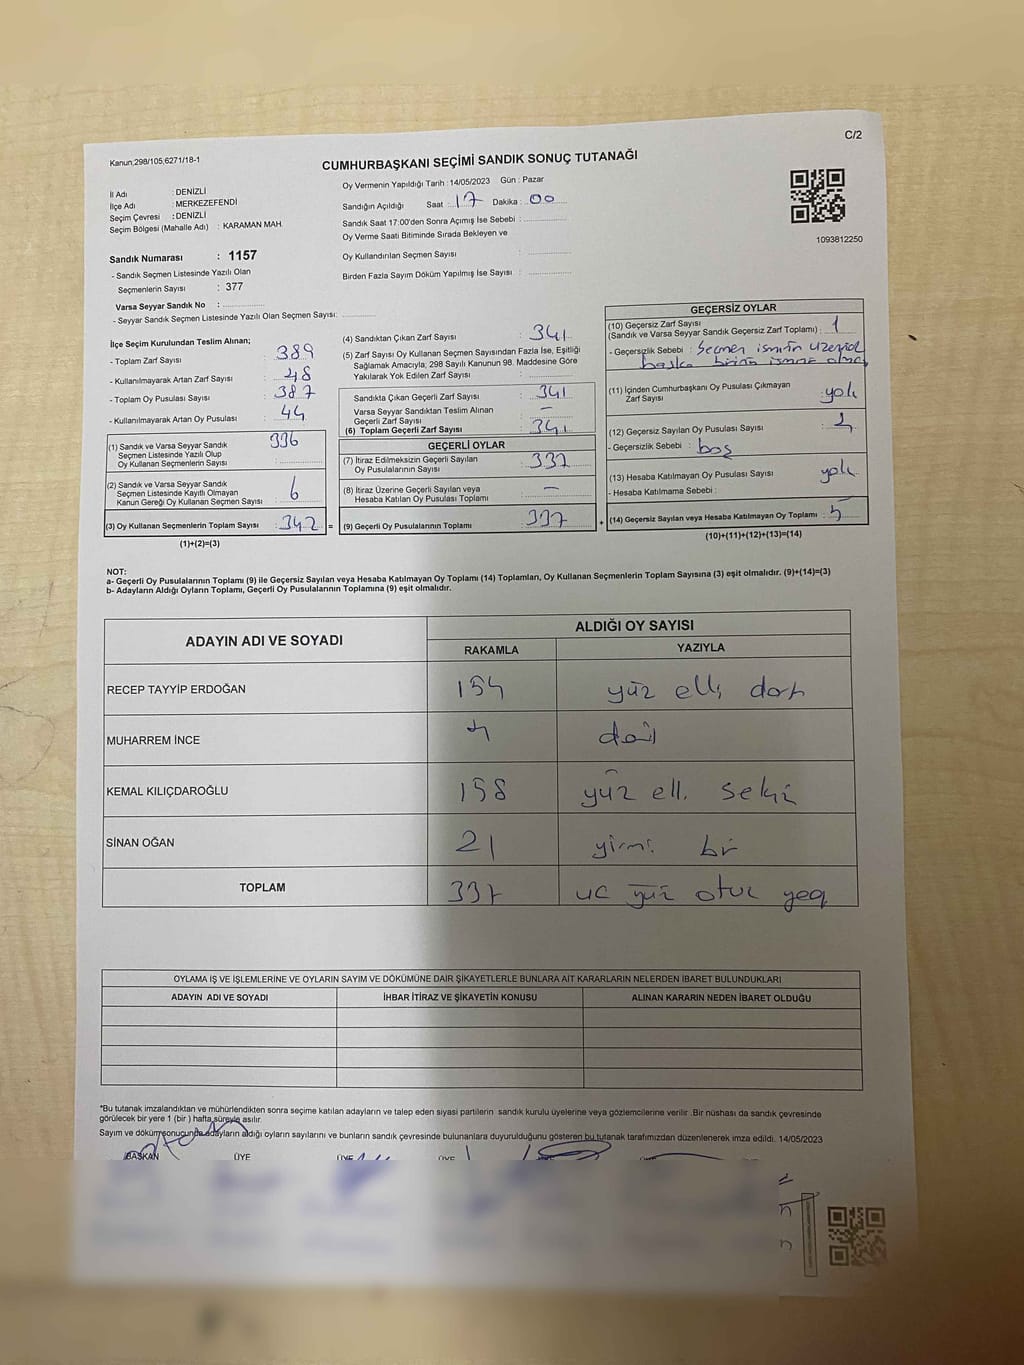 C/2
Kanun,298/105,6271/18-1
CUMHURBAŞKANI SEÇİMİ SANDIK SONUÇ TUTANAĞI
İl Adı : DENİZLİ
İlçe Adı : MERKEZEFENDİ
Seçim Çevresi : DENİZLİ
Seçim Bölgesi (Mahalle Adı) : KARAMAN MAH.
Sandık Numarası : 1157
- Sandık Seçmen Listesinde Yazılı Olan
Seçmenlerin Sayısı : 377
Varsa Seyyar Sandık No :
- Seyyar Sandık Seçmen Listesinde Yazılı Olan Seçmen Sayısı:
Oy Vermenin Yapıldığı Tarih : 14/05/2023 Gün : Pazar
Sandığın Açıldığı Saat : 17 Dakika : 00
Sandık Saat 17:00'den Sonra Açımış İse Sebebi :
Oy Verme Saati Bitiminde Sırada Bekleyen ve
Oy Kullandırılan Seçmen Sayısı :
Birden Fazla Sayım Döküm Yapılmış İse Sayısı :
1093812250
İlçe Seçim Kurulundan Teslim Alınan;
- Toplam Zarf Sayısı : 389
- Kullanılmayarak Artan Zarf Sayısı : 48
- Toplam Oy Pusulası Sayısı : 387
- Kullanılmayarak Artan Oy Pusulası : 44
(1) Sandık ve Varsa Seyyar Sandık 336
Seçmen Listesinde Yazılı Olup
Oy Kullanan Seçmenlerin Sayısı :
(2) Sandık ve Varsa Seyyar Sandık
Seçmen Listesinde Kayıtlı Olmayan
Kanun Gereği Oy Kullanan Seçmen Sayısı : 6
(3) Oy Kullanan Seçmenlerin Toplam Sayısı : 342 =
(1)+(2)=(3)
(4) Sandıktan Çıkan Zarf Sayısı : 341
(5) Zarf Sayısı Oy Kullanan Seçmen Sayısından Fazla İse, Eşitliği
Sağlamak Amacıyla, 298 Sayılı Kanunun 98. Maddesine Göre
Yakılarak Yok Edilen Zarf Sayısı :
Sandıkta Çıkan Geçerli Zarf Sayısı : 341
Varsa Seyyar Sandıktan Teslim Alınan
Geçerli Zarf Sayısı : –
(6) Toplam Geçerli Zarf Sayısı : 341
GEÇERLİ OYLAR
(7) İtiraz Edilmeksizin Geçerli Sayılan
Oy Pusulalarının Sayısı : 337
(8) İtiraz Üzerine Geçerli Sayılan veya
Hesaba Katılan Oy Pusulası Toplamı : –
(9) Geçerli Oy Pusulalarının Toplamı : 337 +
GEÇERSİZ OYLAR
(10) Geçersiz Zarf Sayısı
(Sandık ve Varsa Seyyar Sandık Geçersiz Zarf Toplamı) : 1
- Geçersizlik Sebebi : Seçmen ismının üzerine
başka birinin
(11) İçinden Cumhurbaşkanı Oy Pusulası Çıkmayan
Zarf Sayısı : yok
(12) Geçersiz Sayılan Oy Pusulası Sayısı :
- Geçersizlik Sebebi : boş
(13) Hesaba Katılmayan Oy Pusulası Sayısı : yok
- Hesaba Katılmama Sebebi :
(14) Geçersiz Sayılan veya Hesaba Katılmayan Oy Toplamı : 5
(10)+(11)+(12)+(13)=(14)
NOT:
a- Geçerli Oy Pusulalarının Toplamı (9) ile Geçersiz Sayılan veya Hesaba Katılmayan Oy Toplamı (14) Toplamları, Oy Kullanan Seçmenlerin Toplam Sayısına (3) eşit olmalıdır. (9)+(14)=(3)
b- Adayların Aldığı Oyların Toplamı, Geçerli Oy Pusulalarının Toplamına (9) eşit olmalıdır.
ADAYIN ADI VE SOYADI ALDIĞI OY SAYISI
RAKAMLA YAZIYLA
RECEP TAYYİP ERDOĞAN 154 yüz elli dört
MUHARREM İNCE 4 dört
KEMAL KILIÇDAROĞLU 158 yüz elli sekiz
SİNAN OĞAN 21 yirmi bir
TOPLAM 337 üç yüz otuz yedi
OYLAMA İŞ VE İŞLEMLERİNE VE OYLARIN SAYIM VE DÖKÜMÜNE DAİR ŞİKAYETLERLE BUNLARA AİT KARARLARIN NELERDEN İBARET BULUNDUKLARI
ADAYIN ADI VE SOYADI İHBAR İTİRAZ VE ŞİKAYETİN KONUSU ALINAN KARARIN NEDEN İBARET OLDUĞU
*Bu tutanak imzalandıktan ve mühürlendikten sonra seçime katılan adayların ve talep eden siyasi partilerin sandık kurulu üyelerine veya gözlemcilerine verilir .Bir nüshası da sandık çevresinde
görülecek bir yere 1 (bir ) hafta süreyle asılır.
Sayım ve döküm sonucunda adayların aldığı oyların sayılarını ve bunların sandık çevresinde bulunanlara duyurulduğunu gösteren bu tutanak tarafımızdan düzenlenerek imza edildi. 14/05/2023
BAŞKAN ÜYE ÜYE ÜYE